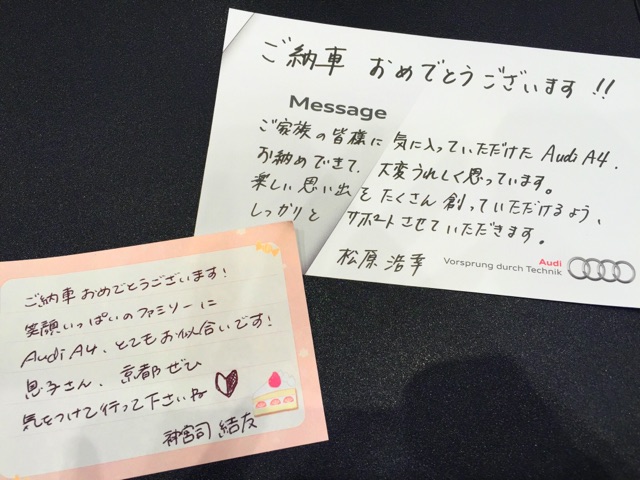 ご納車 おめでとうございます!!
Message
ご家族の皆様に 気に入っていただけた Audi A4、
お納めできて、大変うれしく思っています。
楽しい思い出をたくさん創っていただけるよう、
しっかりと サポートさせていただきます。
松原 浩幸
Audi
Vorsprung durch Technik
ご納車おめでとうございます!
笑顔いっぱいのファミリーに
Audi A4、とてもお似合いです!
息子さん、京都ぜひ
気をつけて行って下さいね
神宮司 結友